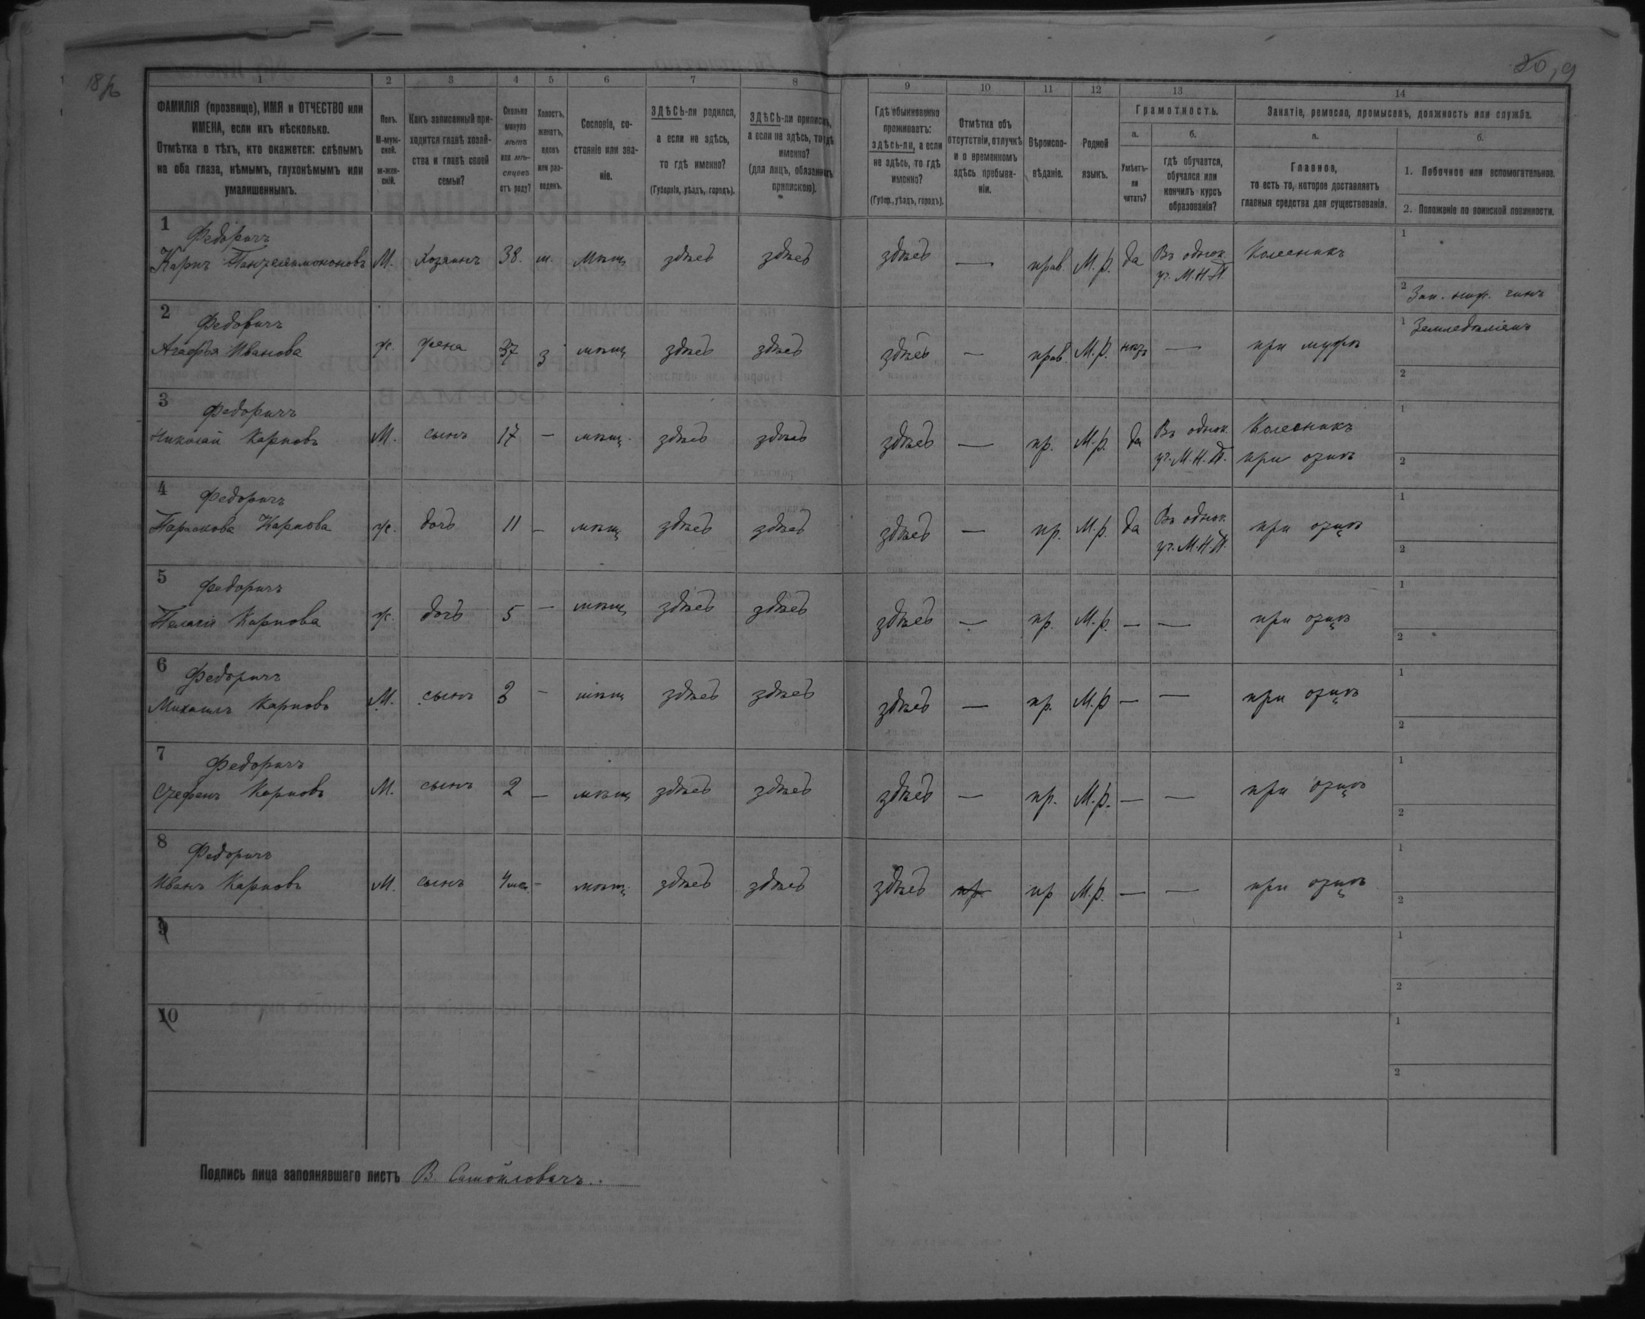 1 2 3 4 5 6 7 8 9 10 11 12 13 14
ФАМИЛІЯ (прозвище), ИМЯ и ОТЧЕСТВО или
ИМЕНА, если ихъ нѣсколько.
Отмѣтка о тѣхъ, кто окажется: слѣпымъ
на оба глаза, нѣмымъ, глухонѣмымъ или
умалишеннымъ.
Полъ.
М-муж-
ской.
ж-жен-
скій.
Какъ записанный при-
ходится главѣ хозяй-
ства и главѣ своей
семьи?
Сколько
минуло
лѣтъ
или мѣ-
сяцевъ
отъ роду?
Холостъ,
женатъ,
вдовъ
или раз-
веденъ.
Сословіе, со-
стояніе или зва-
ніе.
ЗДѢСЬ-ли родился,
а если не здѣсь,
то гдѣ именно?
(Губернія, уѣздъ, городъ).
ЗДѢСЬ-ли приписанъ,
а если не здѣсь, то гдѣ
именно?
(для лицъ, обязанныхъ
припискою).
Гдѣ обыкновенно
проживаетъ:
здѣсь-ли, а если
не здѣсь, то гдѣ
именно?
(Губер., уѣздъ, городъ).
Отмѣтка объ
отсутствіи, отлучкѣ
и о временномъ
здѣсь пребыва-
ніи.
Вѣроиспо-
вѣданіе.
Родной
языкъ.
Грамотность.
а.
Умѣетъ-
ли
читать?
б.
гдѣ обучается,
обучался или
кончилъ курсъ
образованія?
Занятіе, ремесло, промыселъ, должность или служба.
а.
Главное,
то есть то, которое доставляетъ
главныя средства для существованія.
б.
1. Побочное или вспомогательное.
2. Положеніе по воинской повинности.
1 Федоричъ
Карпъ Пантелимоновъ М. Хозяинъ 38. ж. Мѣщ здѣсь здѣсь здѣсь — прав М.р. да Въ однок. уч. М.Н.П Колесникъ
1
2 Зап. ниж. чинъ
2 Федоричъ
Агафья Иванова ж. жена 37 з мѣщ здѣсь здѣсь здѣсь — прав. М.р. нѣтъ — при мужѣ
1 Земледѣліемъ
2
3 Федоричъ
Николай Карповъ М. сынъ 17 — мѣщ. здѣсь здѣсь здѣсь — пр. М.р. да Въ однок уч. М.Н.П. Колесникъ при отцѣ
1
2
4 Федоричъ
Карпова ж. дочь 11 — мѣщ здѣсь здѣсь здѣсь — пр. М.р. да Въ однок. уч. М.Н.П. при отцѣ
1
2
5 Федоричъ
Карпова ж. дочь 5 — мѣщ здѣсь здѣсь здѣсь — пр. М.р. — — при отцѣ
1
2
6 Федоричъ
Михаилъ Карповъ М. сынъ 3 — мѣщ здѣсь здѣсь здѣсь — пр. М.р — — при отцѣ
1
2
7 Федоричъ
Стефанъ Карповъ М. сынъ 2 — мѣщ здѣсь здѣсь здѣсь — пр. М.р. — — при отцѣ
1
2
8 Федоричъ
Иванъ Карповъ М. сынъ 4 мѣс — мѣщ. здѣсь здѣсь здѣсь пр пр М.р. — — при отцѣ
1
2
9
1
2
10
1
2
Подпись лица заполнявшаго листъ В. Самойловичъ.